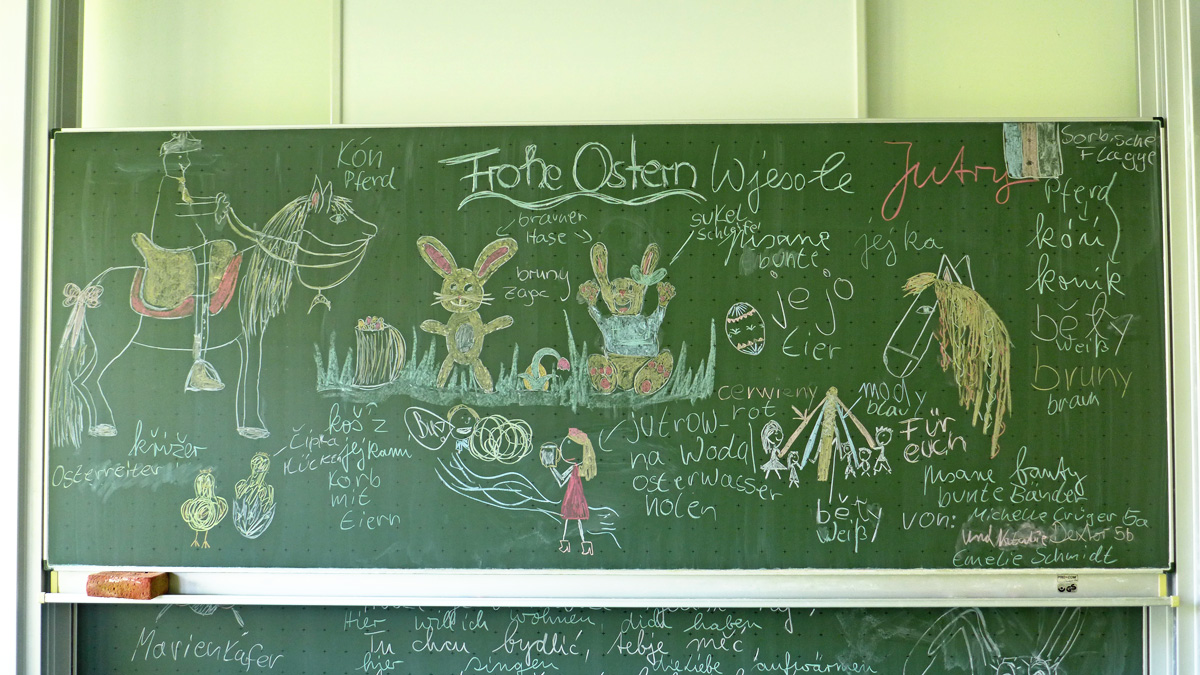 Frohe Ostern Wjesołe Jutry
Sorbische
Flagge
Kón
Pferd
brauner
Hase
bruny
zajc
suknja
pisane
bunte
jejka
jejo
Eier
Pferd
kóń
konik
běły
weiß
bruny
braun
křižer
Osterreiter
Čipka
Kücken
koš z
jejkami
Korb
mit
Eiern
jutrow-
na woda
osterwasser
holen
čerwjeny
rot
mody
blau
Für
euch
běły
weiß
pisane
bunte Bänder
von: Michelle Crüger 5a
und Dexter 5b
Emelie Schmidt
Marienkäfer
Hier will ich wohnen, dich haben
Tu chcu bydlić, tebje měć
hier singen die Liebe aufwärmen